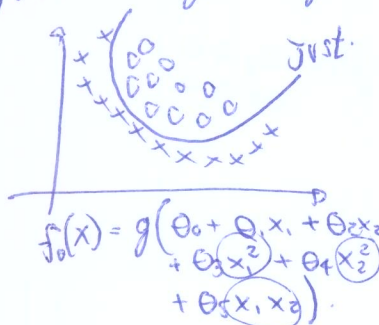 just.
f₀(x) = g(θ₀ + θ₁x₁ + θ₂x₂
+ θ₃x₁² + θ₄x₂²
+ θ₅x₁x₂).